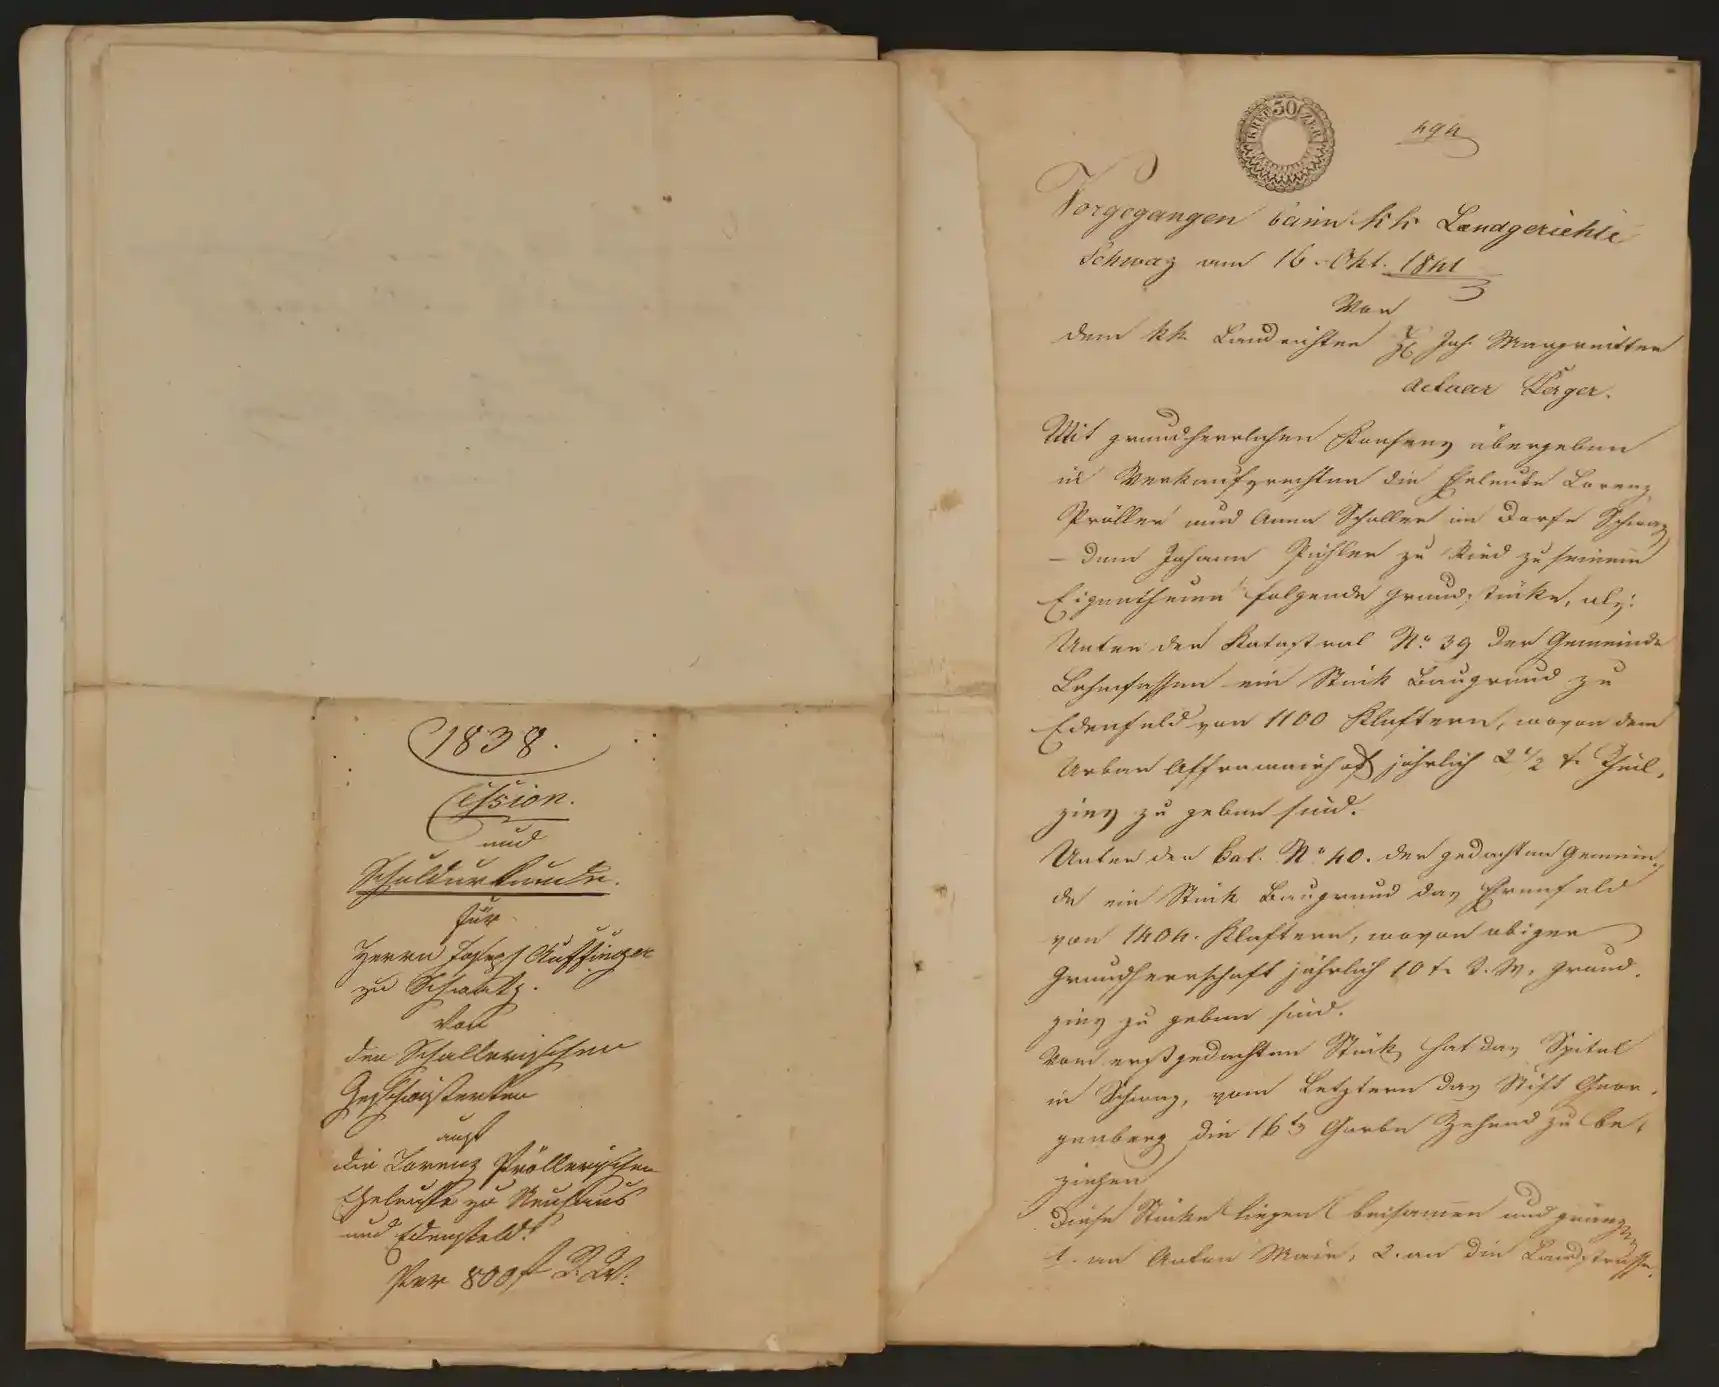 1838.
Cession.
und
Schuldurkunde.
für
Herrn Joseph Aufsinger
zu Schwatz.
Von
den Schallerischen
Geschwisterten
auf
die Lorenz Pröllerischen
Eheleute zu Neuhaus
und Edenfeld.
Per 800 f R. W.
KREUZER 30
494
Vorgegangen beim kk Landgerichte
Schwaz am 16. Okt. 1841
Von
dem kk. Landrichter H Joh. Margreitter
Actuar Perger.
Mit grundherrlichen Konsens übergeben
in Verkaufsrechten die Eheleute Lorenz
Pröller und Anna Schaller im Dorfe Schwaz
– dem Johann Pichler zu Ried zu seinem
Eigenthume folgende Grundstücke, als:
Unter der Katastral No. 39 der Gemeinde
ein Stück Baugrund zu
Edenfeld von 1100 Klaftern, wovon dem
Urbar jährlich 2 1/2 x. Theil-
zins zu geben sind.
Unter der Cat. No 40. der gedachten Gemein-
de ein Stück Baugrund das
von 1404. Klaftern, wovon obiger
Grundherrschaft jährlich 10 x. T. W. Grund-
zins zu geben sind.
Vom erstgedachten Stück hat das Spital
in Schwaz, vom Letztern das Stift Geor-
genberg die 16te Garbe Zehend zu be-
ziehen
Diese Stücke liegen beisamen und gränzen
1. an Anton Mair, 2. an die Landstrasse,